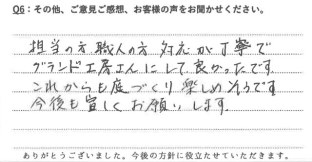 Q6：その他、ご意見ご感想、お客様の声をお聞かせください。
担当の方 職人の方 対応が丁寧で
グランド工房さんにして良かったです。
これからも庭づくり楽しめそうです
今後も宜しくお願いします。
ありがとうございました。今後の方針に役立たせていただきます。